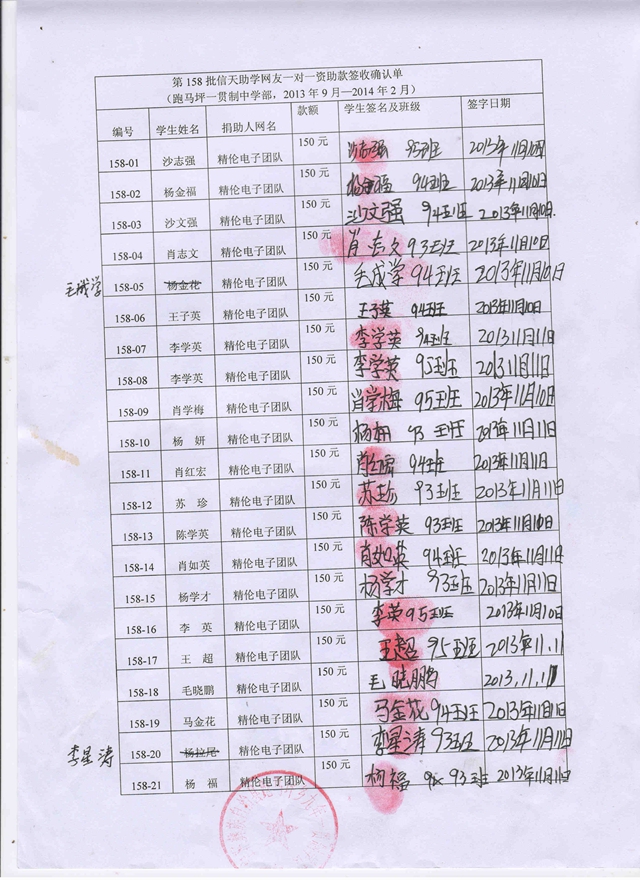 第 158 批信天助学网友一对一资助款签收确认单
（跑马坪一贯制中学部，2013 年 9 月—2014 年 2 月）
编号 学生姓名 捐助人网名 款额 学生签名及班级 签字日期
158-01 沙志强 精伦电子团队 150 元 沙志强 95班 2013年11月10日
158-02 杨金福 精伦电子团队 150 元 杨金福 94班 2013年11月10日
158-03 沙文强 精伦电子团队 150 元 沙文强 94班 2013年11月10日
158-04 肖志文 精伦电子团队 150 元 肖志文 93班 2013年11月10日
毛成学 158-05 杨金花 精伦电子团队 150 元 毛成学 94班 2013年11月10日
158-06 王子英 精伦电子团队 150 元 王子英 94班 2013年11月10日
158-07 李学英 精伦电子团队 150 元 李学英 94班 2013年11月11日
158-08 李学英 精伦电子团队 150 元 李学英 95班 2013年11月11日
158-09 肖学梅 精伦电子团队 150 元 肖学梅 95班 2013年11月10日
158-10 杨 妍 精伦电子团队 150 元 杨妍 93班 2013年11月11日
158-11 肖红宏 精伦电子团队 150 元 94班 2013年11月11日
158-12 苏 珍 精伦电子团队 150 元 苏珍 93班 2013年11月11日
158-13 陈学英 精伦电子团队 150 元 陈学英 93班 2013年11月10日
158-14 肖如英 精伦电子团队 150 元 肖如英 94班 2013年11月11日
158-15 杨学才 精伦电子团队 150 元 杨学才 93班 2013年11月11日
158-16 李 英 精伦电子团队 150 元 李英 95班 2013年11月10日
158-17 王 超 精伦电子团队 150 元 王超 95班 2013年11.11
158-18 毛晓鹏 精伦电子团队 150 元 毛晓鹏 2013.11.11
158-19 马金花 精伦电子团队 150 元 马金花 94班 2013年11月11日
李星涛 158-20 杨拉尾 精伦电子团队 150 元 李星涛 93班 2013年11月11日
158-21 杨 福 精伦电子团队 150 元 杨福 93班 2013年11月11日